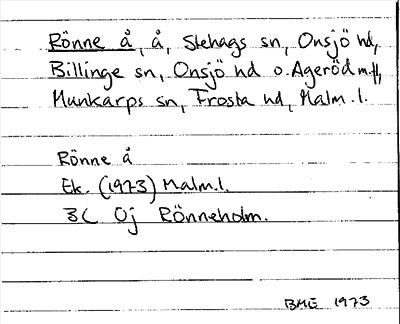 Rönne å, å, Stehags sn, Onsjö hd,
Billinge sn, Onsjö hd o. Ageröd m. fl,
Munkarps sn, Frosta hd, Malm. l.
Rönne å
Ek. (1973) Malm. l.
3C 0j Rönneholm.
BME 1973